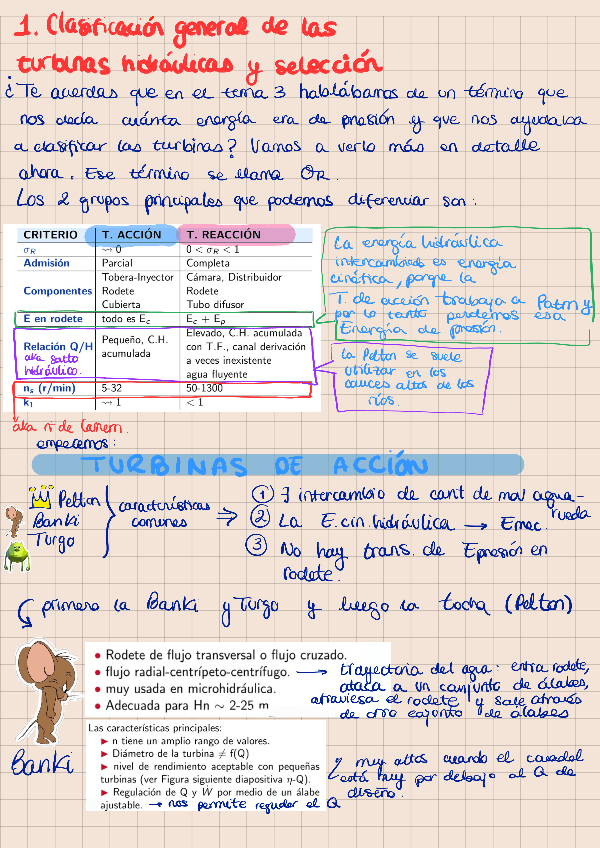 1. Clasificación general de las
turbinas hidráulicas y selección
¿Te acuerdas que en el tema 3 hablábamos de un término que
nos decía cuánta energía era de presión y que nos ayudaba
a clasificar las turbinas? Vamos a verlo más en detalle
ahora. Ese término se llama σR.
Los 2 grupos principales que podemos diferenciar son:
CRITERIO T. ACCIÓN T. REACCIÓN
σR ⇝ 0 0 < σR < 1
Admisión Parcial Completa
Componentes
Tobera-Inyector
Rodete
Cubierta
Cámara, Distribuidor
Rodete
Tubo difusor
E en rodete todo es Ec Ec + Ep
Relación Q/H
aka salto
hidráulico.
Pequeño, C.H.
acumulada
Elevado, C.H. acumulada
con T.F., canal derivación
a veces inexistente
agua fluyente
ns (r/min) 5-32 50-1300
k1 ⇝ 1 < 1
La energía hidráulica
intercambiada es energía
cinética, porque la
T. de acción trabaja a Patm y
por lo tanto perdemos esa
Energía de presión.
La Pelton se suele
utilizar en los
cauces altos de los
ríos.
aka nº de Camern.
empecemos:
TURBINAS DE ACCIÓN
Pelton
Banki
Turgo
características
comunes
⇒
1 ∃ intercambio de cant de mov agua-
rueda
2 La E.cin.hidráulica → Emec.
3 No hay trans. de Epresión en
rodete.
primero la Banki y Turgo y luego la tocha (Pelton)
• Rodete de flujo transversal o flujo cruzado.
• flujo radial-centrípeto-centrífugo.
• muy usada en microhidráulica.
• Adecuada para Hn ∼ 2-25 m
→ trayectoria del agua: entra rodete,
ataca a un conjunto de álabes,
atraviesa el rodete y sale através
de otro conjunto de álabes
Banki
Las características principales:
▶ n tiene un amplio rango de valores.
▶ Diámetro de la turbina ≠ f(Q)
▶ nivel de rendimiento aceptable con pequeñas
turbinas (ver Figura siguiente diapositiva η-Q).
▶ Regulación de Q y Ẇ por medio de un álabe
ajustable. → nos permite regular el Q
y muy altos cuando el caudal
está muy por debajo al Q de
diseño.